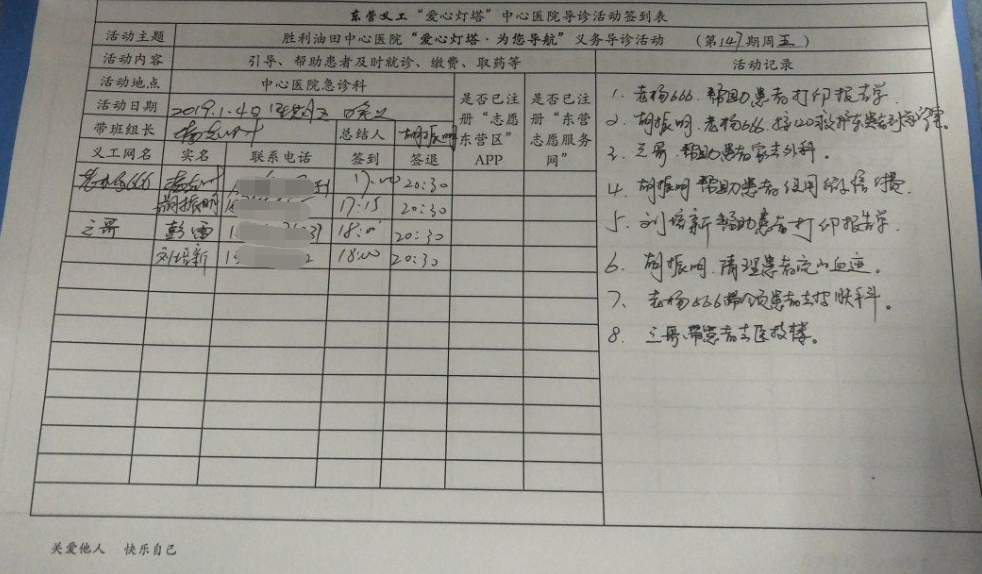 东营义工“爱心灯塔”中心医院导诊活动签到表
活动主题 胜利油田中心医院“爱心灯塔·为您导航”义务导诊活动 （第147期周五）
活动内容 引导、帮助患者及时就诊、缴费、取药等 活动记录
活动地点 中心医院急诊科
活动日期 2019.1.4日
是否已注册“志愿东营区”APP
是否已注册“东营志愿服务网”
带班组长 总结人 胡振明
义工网名 实名 联系电话 签到 签退
老杨666 17:00 20:30
胡振明 17:15 20:30
三哥 彭雷 18:00 20:30
刘培新 18:00 20:30
1. 老杨666.帮助患者打印报告单.
2. 胡振明.老杨666.接120救护车患者到
3. 三哥.帮助患者家去外科。
4. 胡振明帮助患者使用微信付费
5. 刘培新帮助患者打印报告单.
6. 胡振明.清理患者流的血迹。
7. 老杨666带领患者去皮肤科。
8. 三哥.带患者去医技楼。
关爱他人 快乐自己